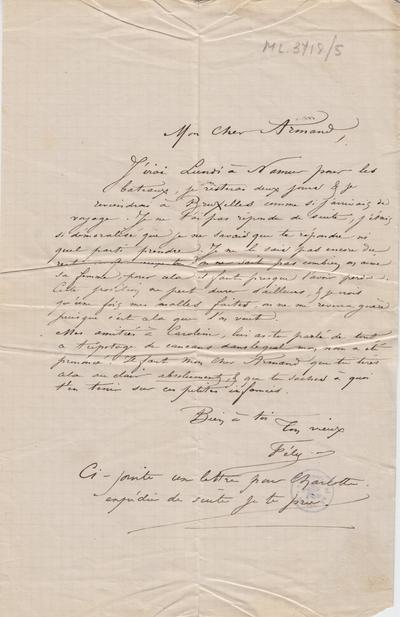 ML. 3718/5
Mon Cher Armand,
J'irai Lundi à Namur pour les
bateaux, je resterai deux jours & je
reviendrai à Bruxelles comme si j'arrivais de
voyage. Je ne t'ai pas répondu de suite, j'étais
si démoralisé que je ne savais que te répondre ni
quel parti prendre. Je ne le sais pas encore du
reste on ne sait pas combien on aime
sa femme pour cela il faut presque l'avoir perdu
Cette position ne peut durer d'ailleurs & je crois
qu'une fois mes malles faites, on ne me reverra guère
puisque c'est cela que l'on veut.
Mes amitiés à Caroline, lui as-tu parlé de tout
ce tripotage de cancans dans lequel mon nom a été
prononcé. Il faut mon cher Armand que tu tires
cela au clair absolument & que tu saches à quoi
t'en tenir sur ces petites infamies.
Bien à toi
Ton vieux
Fély
Ci-jointe une lettre pour Charlotte
expédie de suite je te prie.